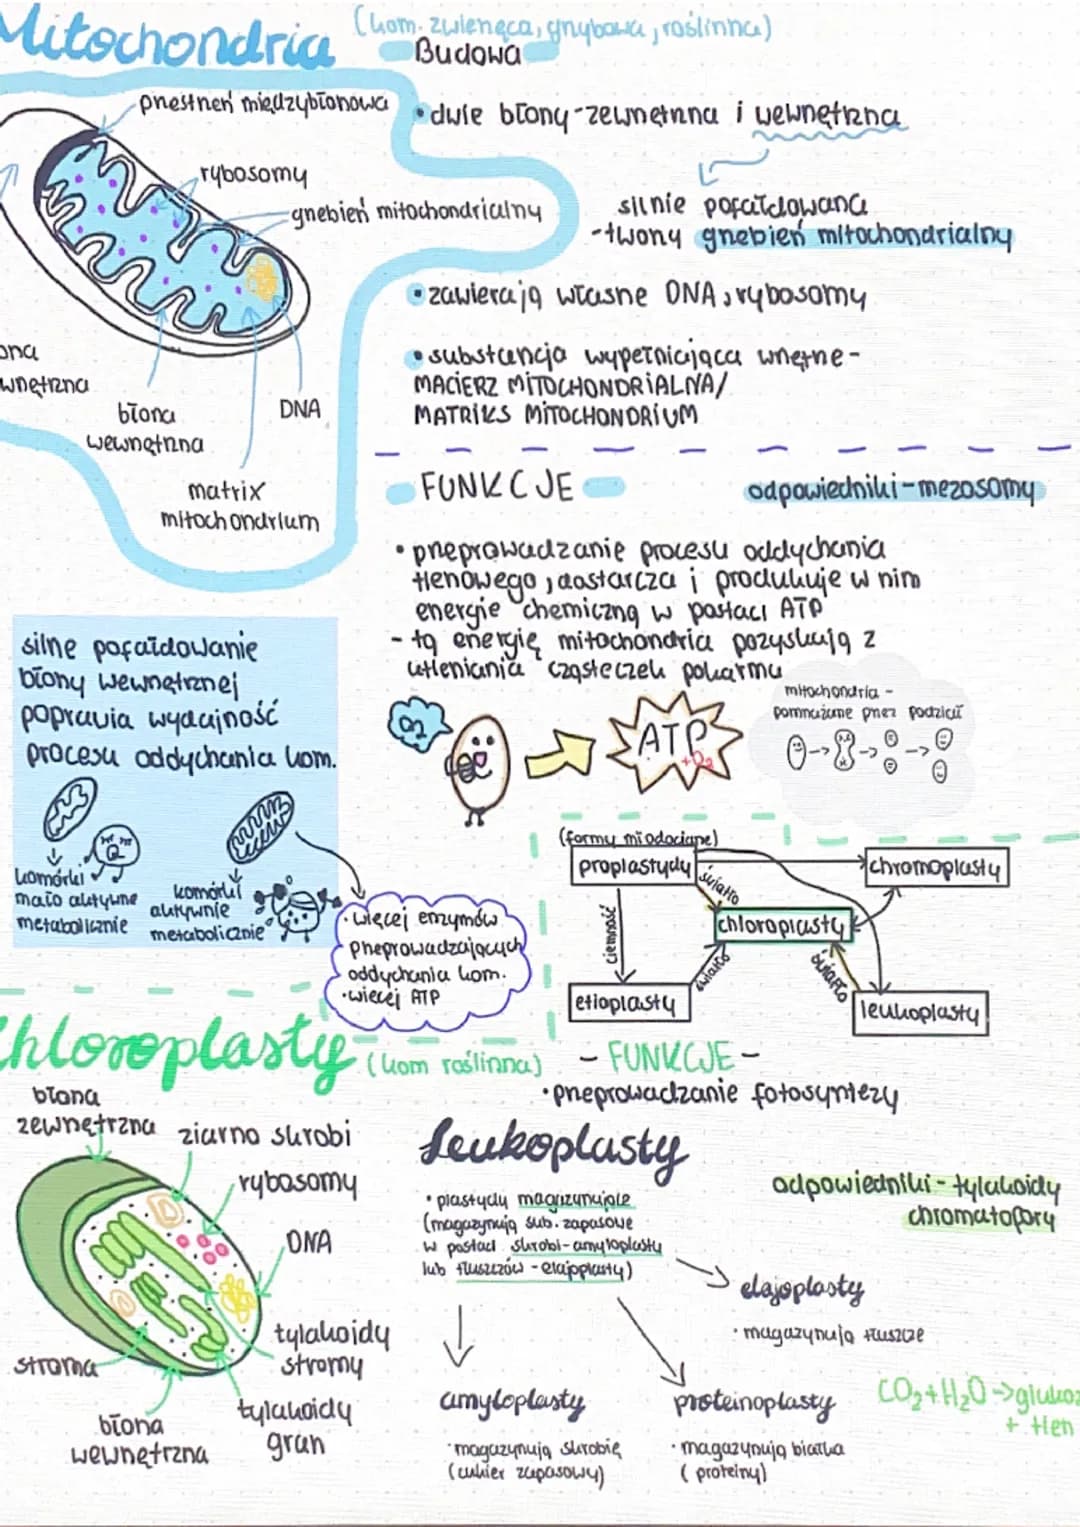 Mitochondria (kom. zwierzęca, grzybowa, roślinna)
Budowa
przestrzeń międzybłonowa
rybosomy
grzebień mitochondrialny
błona
wewnętrzna
DNA
matrix
mitochondrium
• dwie błony - zewnętrzna i wewnętrzna
silnie pofałdowana
- tworzy grzebień mitochondrialny
• zawierają własne DNA, rybosomy
• substancja wypełniająca wnętrze -
MACIERZ MITOCHONDRIALNA/
MATRIKS MITOCHONDRIUM
FUNKCJE
odpowiedniki - mezosomy
• przeprowadzanie procesu oddychania
tlenowego, dostarcza i produkuje w nim
energie chemiczną w postaci ATP
- tą energię mitochondria pozyskują z
utleniania cząsteczek pokarmu
silne pofałdowanie
błony wewnętrznej
poprawia wydajność
procesu oddychania kom.
komórki
mało aktywne
metabolicznie
komórki
aktywnie
metabolicznie
• więcej enzymów
przeprowadzających
oddychania kom.
• więcej ATP
O2
ATP
+O2
mitochondria -
pomnażane przez podział
(formy młodociane)
proplastydy
chromoplasty
światło
chloroplasty
ciemność
światło
światło
etioplasty
leukoplasty
Chloroplasty (kom roślinna)
- FUNKCJE -
• przeprowadzanie fotosyntezy
błona
zewnętrzna
ziarno skrobi
rybosomy
DNA
tylakoidy
stromy
stroma
błona
wewnętrzna
tylakoidy
gran
Leukoplasty
• plastydy magazynujące
(magazynują sub. zapasowe
w postaci skrobi - amyloplasty
lub tłuszczów - elajoplasty)
odpowiedniki - tylakoidy
chromatofory
elajoplasty
• magazynują tłuszcze
amyloplasty
• magazynują skrobię
(cukier zapasowy)
proteinoplasty
• magazynują białka
(proteiny)
CO2 + H2O ->
+ tlen